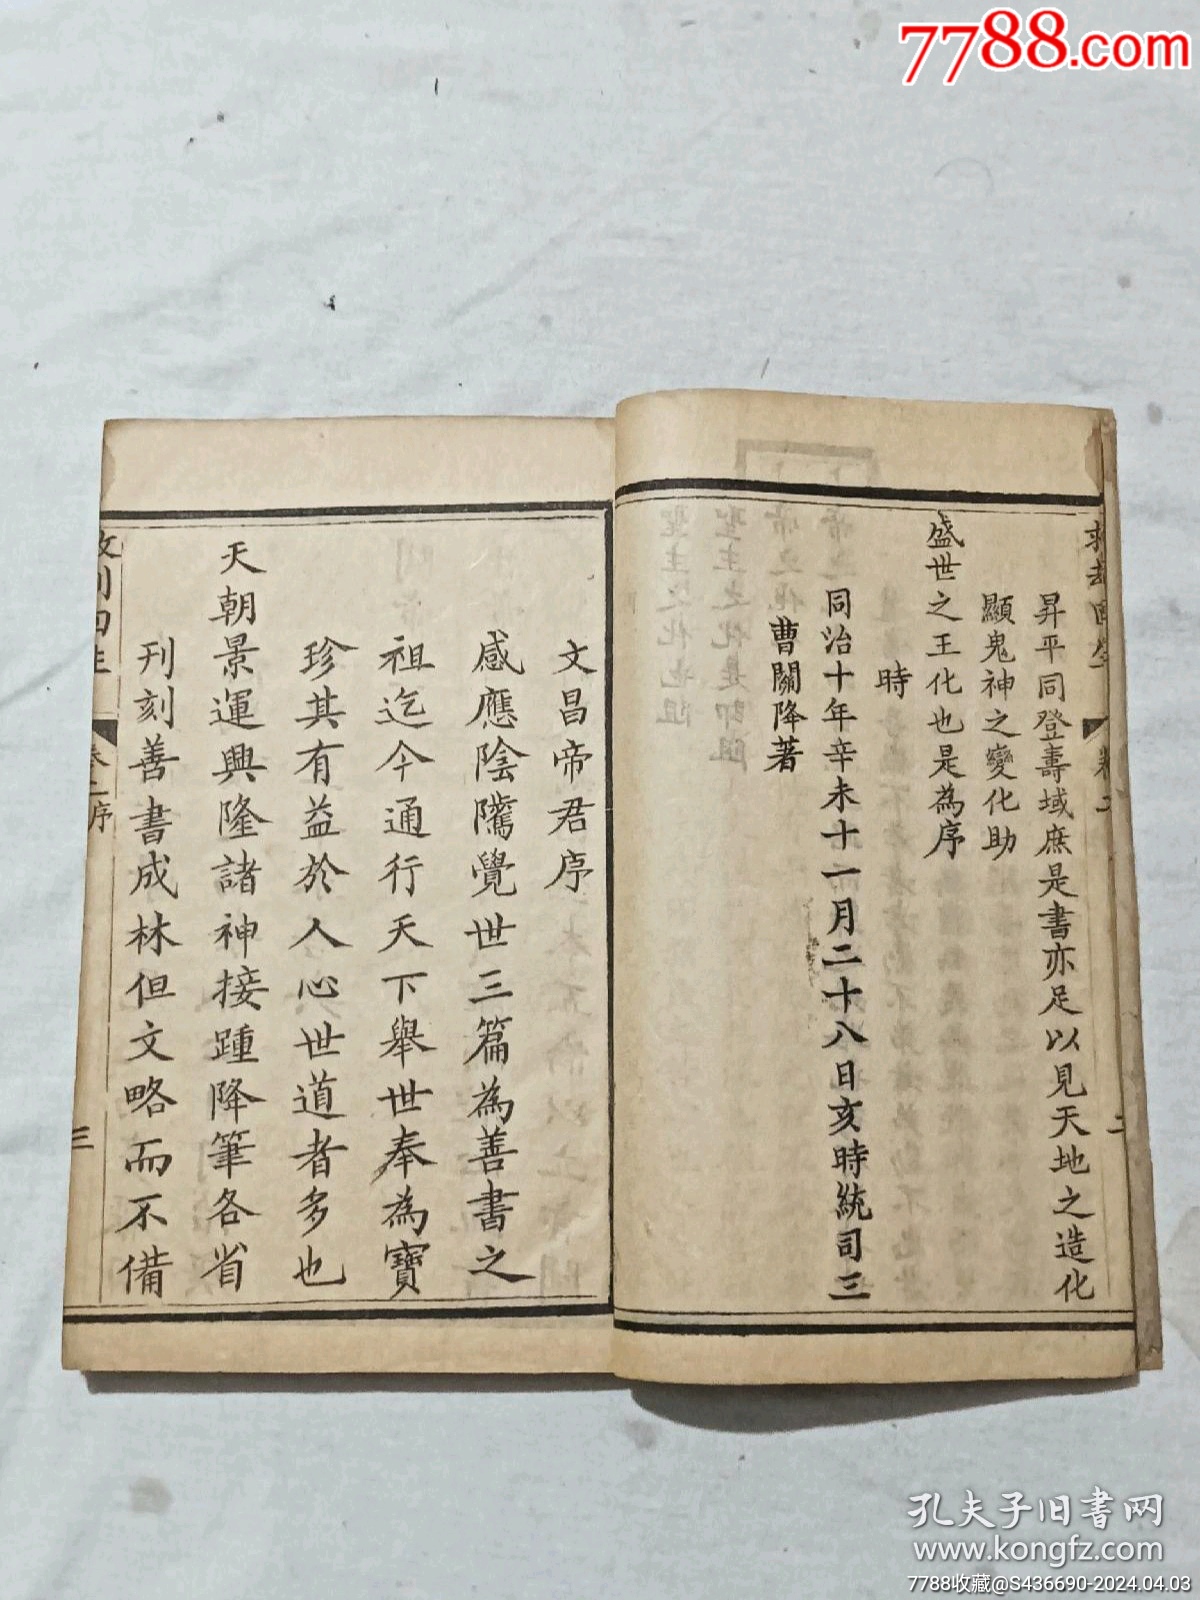 7788.com
昇平同登壽域庶是書亦足以見天地之造化
顯鬼神之變化助
盛世之王化也是為序
時
同治十年辛未十一月二十八日亥時統司三
曹關降著
救劫回生
卷二
二
文昌帝君序
感應陰騭覺世三篇為善書之
祖迄今通行天下舉世奉為寶
珍其有益於人心世道者多也
天朝景運興隆諸神接踵降筆各省
刊刻善書成林但文略而不備
救劫回生
卷二序
三
孔夫子旧书网
www.kongfz.com
7788收藏@S436690-2024.04.03